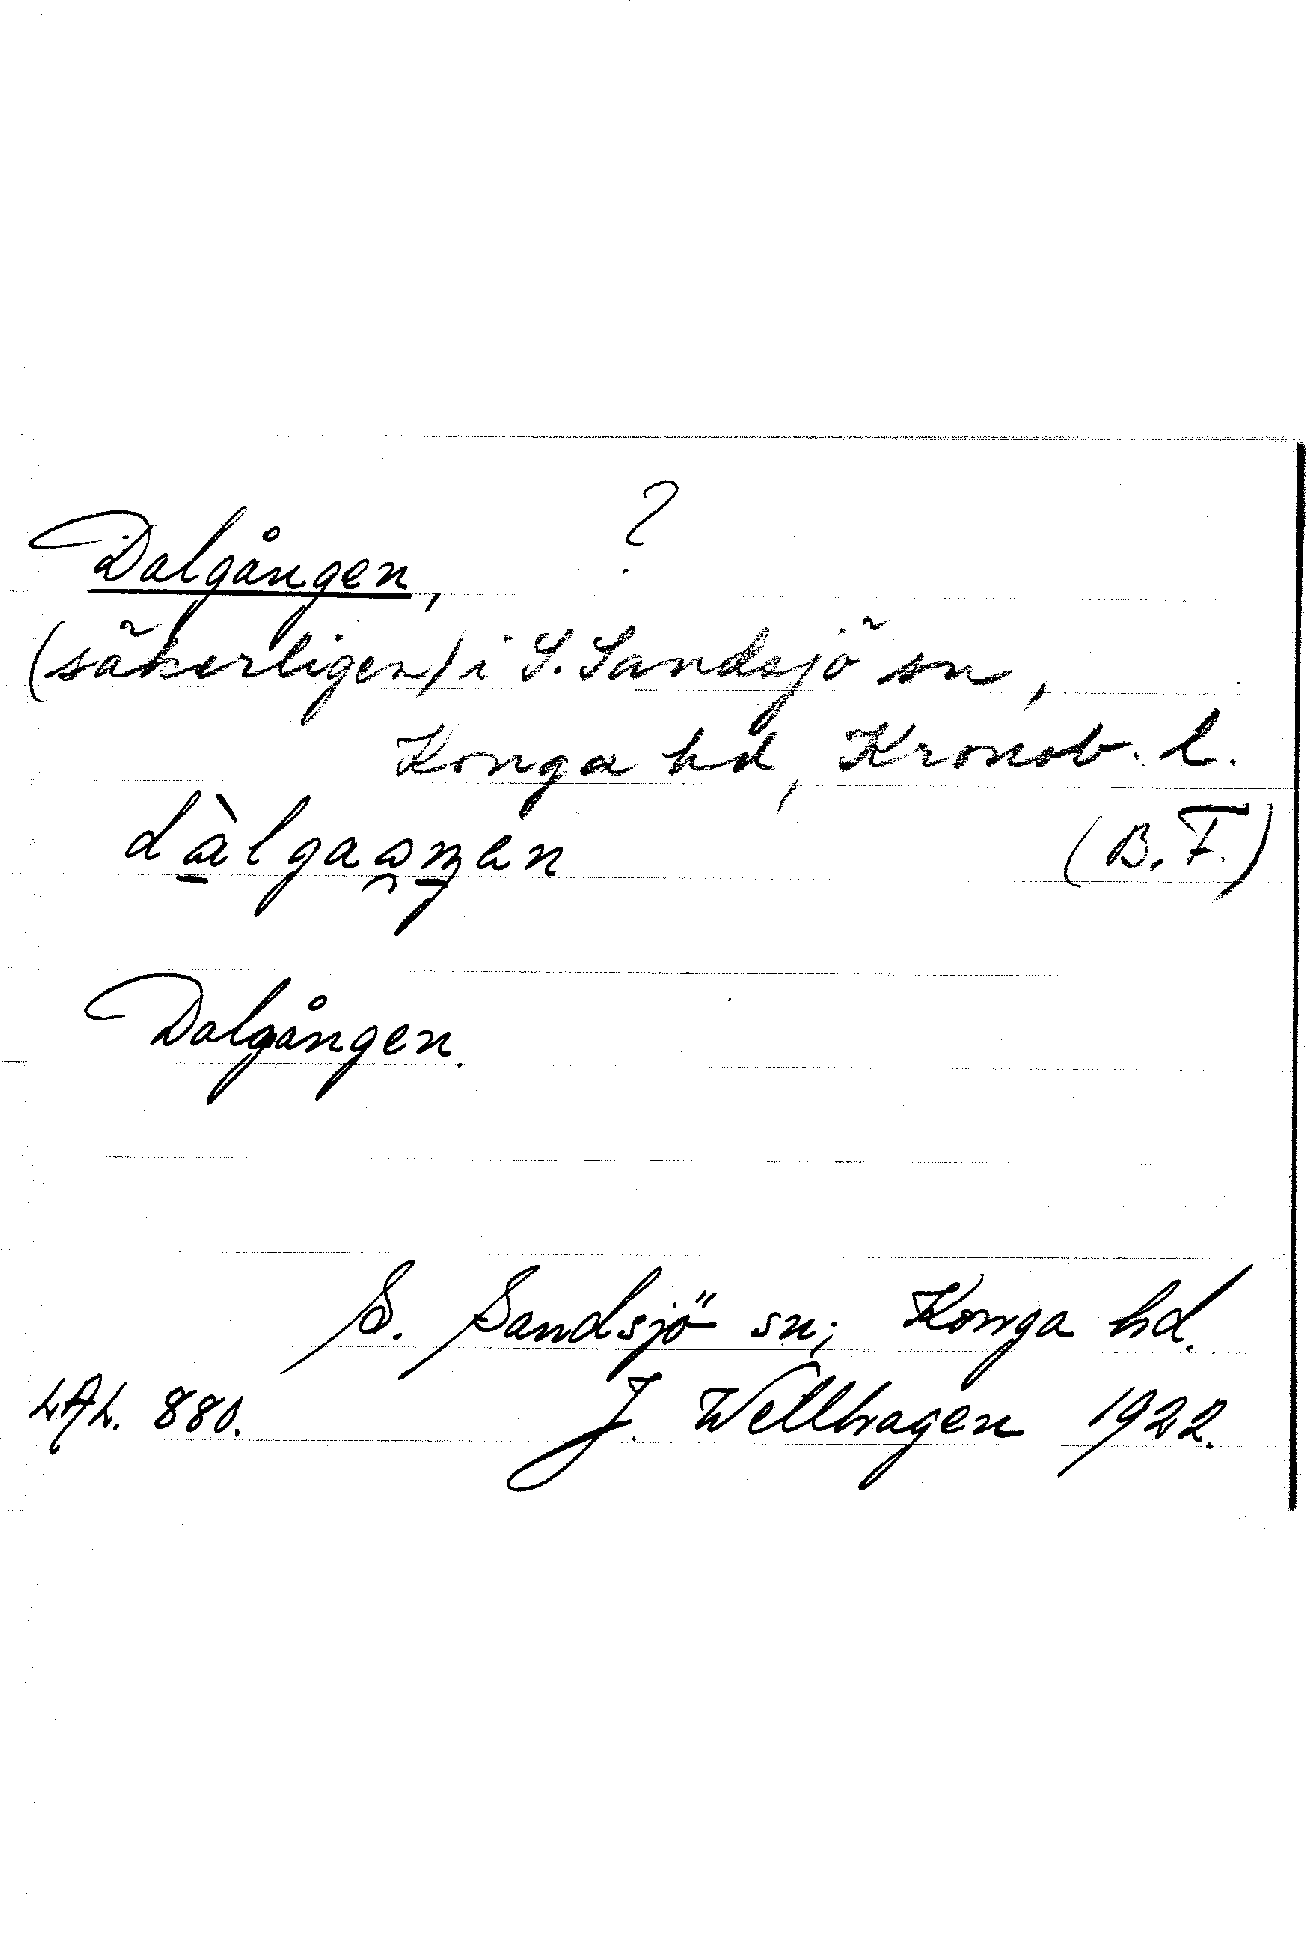 Dalgången, ?
(säkerligen) i S. Sandsjö sn,
Konga hd, Kronob. l.
(B.F.)
Dalgången.
S. Sandsjö sn; Konga hd.
LAL. 880. J. Wellhagen 1922.